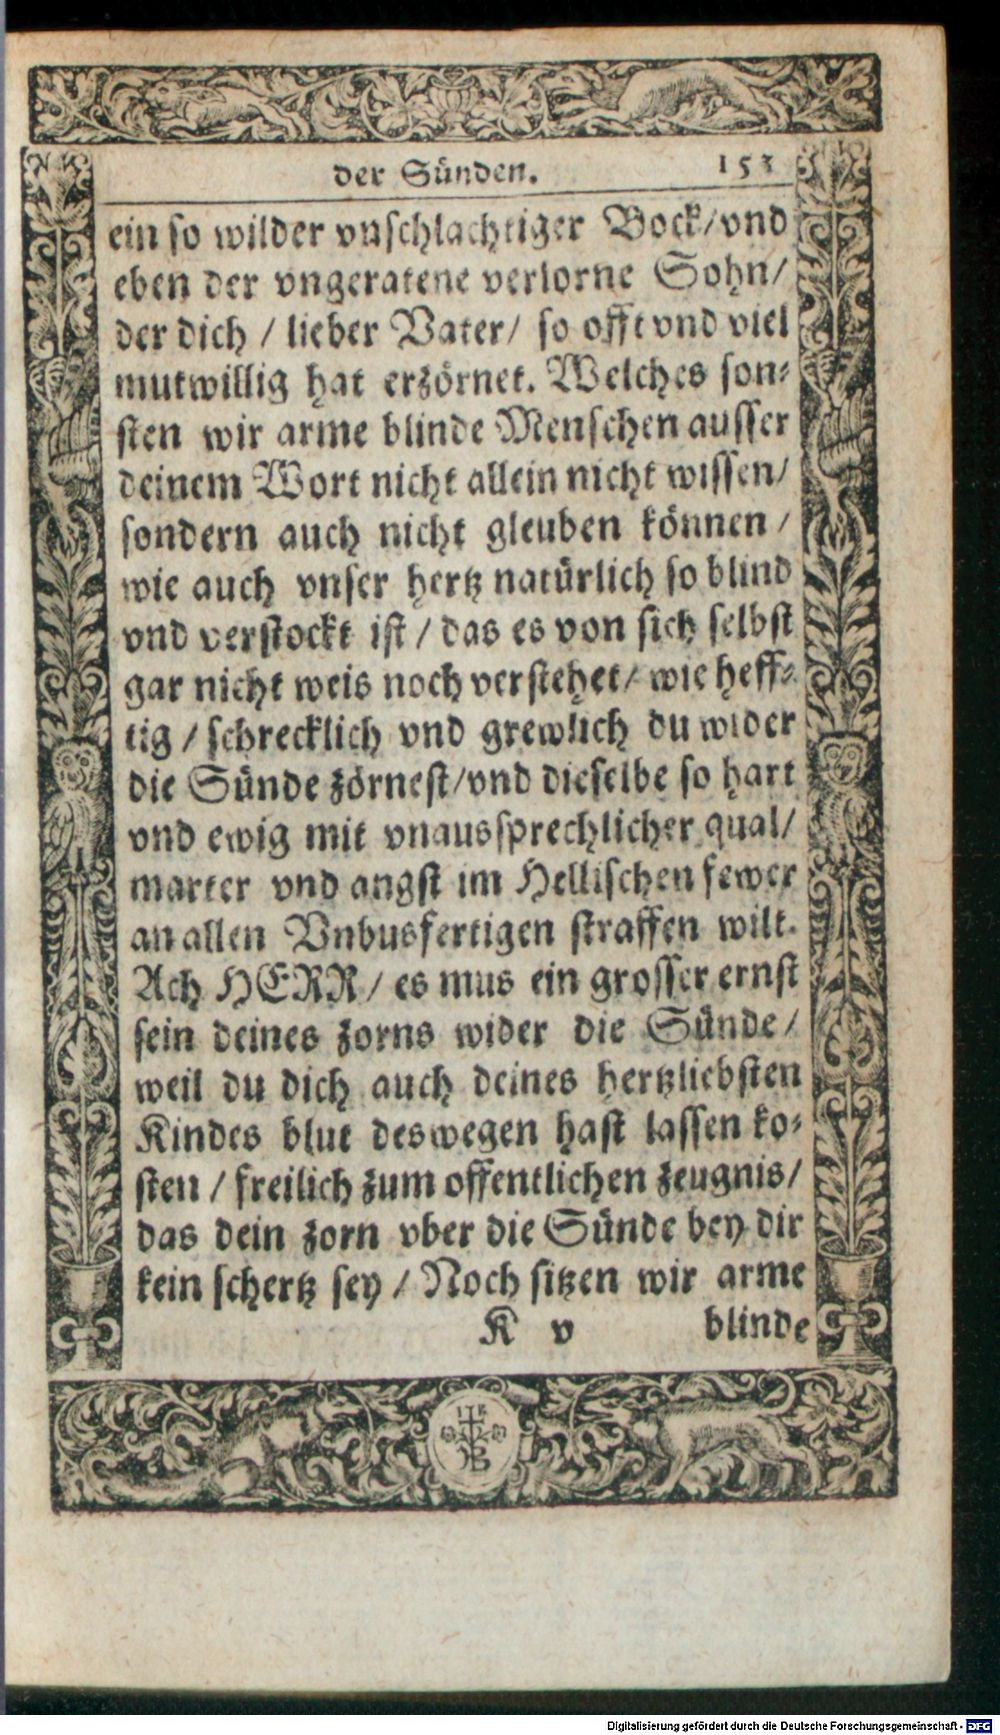 der Sünden. 153
ein so wilder vnschlachtiger Bock/vnd
eben der vngeratene verlorne Sohn/
der dich / lieber Vater/ so offt vnd viel
mutwillig hat erzörnet. Welches son-
sten wir arme blinde Menschen ausser
deinem Wort nicht allein nicht wissen/
sondern auch nicht gleuben können /
wie auch vnser hertz natürlich so blind
vnd verstockt ist / das es von sich selbst
gar nicht weis noch verstehet/ wie heff-
tig / schrecklich vnd grewlich du wider
die Sünde zörnest/vnd dieselbe so hart
vnd ewig mit vnaussprechlicher qual/
marter vnd angst im Hellischen fewer
an allen Vnbusfertigen straffen wilt.
Ach HERR / es mus ein grosser ernst
sein deines zorns wider die Sünde /
weil du dich auch deines hertzliebsten
Kindes blut deswegen hast lassen ko-
sten / freilich zum offentlichen zeugnis/
das dein zorn vber die Sünde bey dir
kein schertz sey / Noch sitzen wir arme
K v blinde
Digitalisierung gefördert durch die Deutsche Forschungsgemeinschaft - DFG